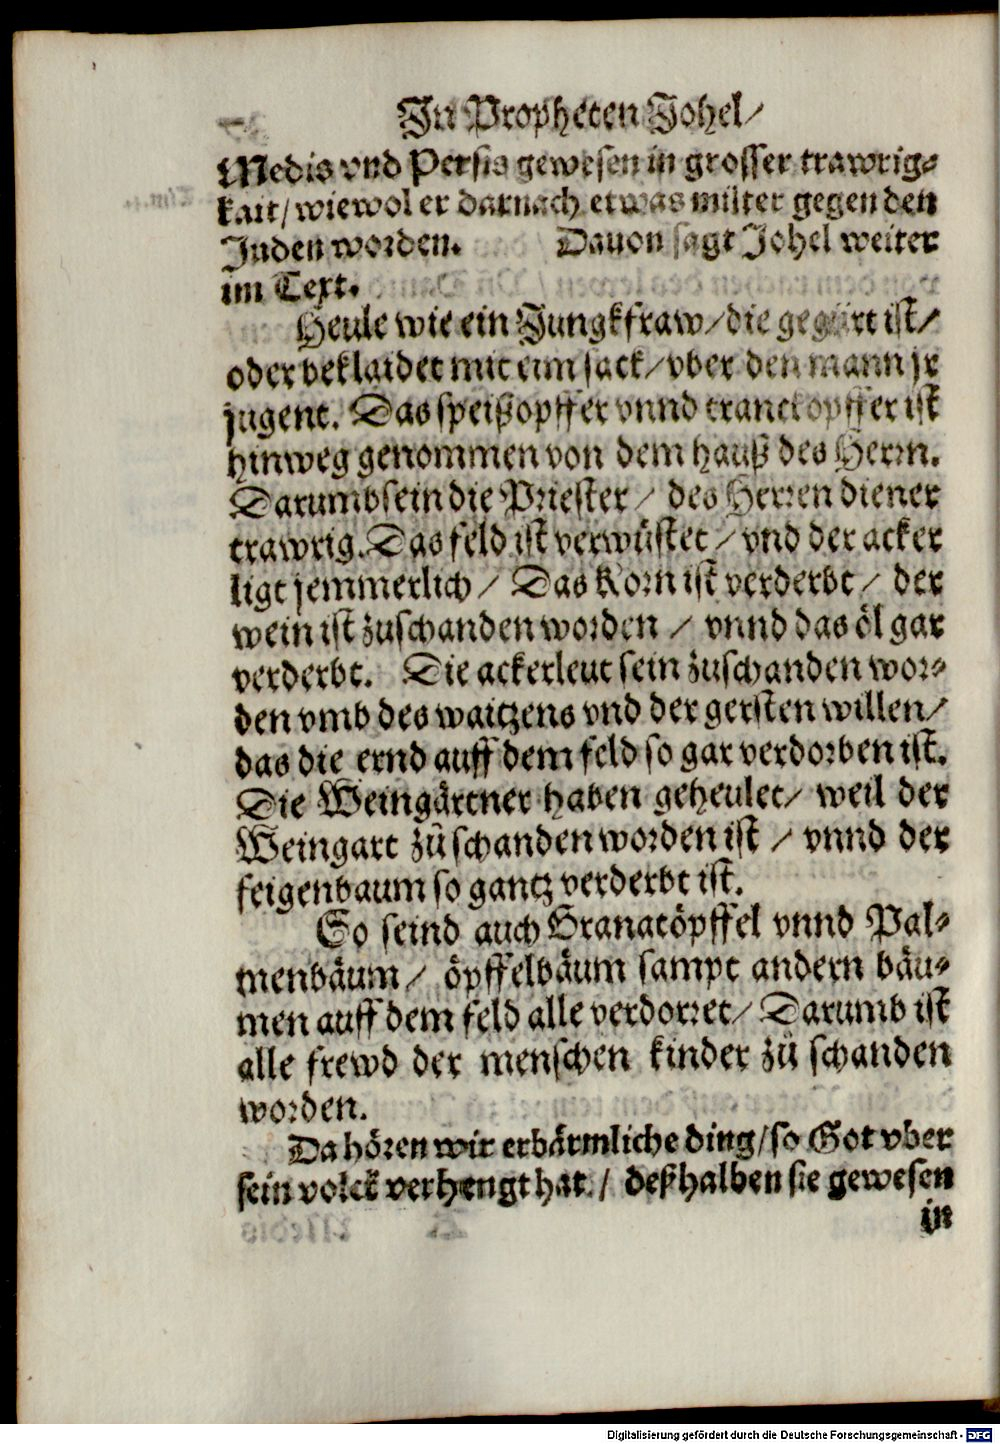 In Propheten Johel/
Medis vnd Persis gewesen in grosser trawrig⸗
kait/ wiewol er darnach etwas milter gegen den
Juden worden. Dauon sagt Johel weiter
im Text.
Heule wie ein Jungkfraw/ die gegürt ist/
oder beklaidet mit eim sack/ vber den mann jr
jugent. Das speißopffer vnnd tranckopffer ist
hinweg genommen von dem hauß des Herrn.
Darumb sein die Priester/ des Herren diener
trawrig. Das feld ist verwüstet/ vnd der acker
ligt jemmerlich/ Das Korn ist verderbt/ der
wein ist zuschanden worden/ vnnd das öl gar
verderbt. Die ackerleut sein zuschanden wor⸗
den vmb des waitzens vnd der gersten willen/
das die ernd auff dem feld so gar verdorben ist.
Die Weingärtner haben geheulet/ weil der
Weingart zů schanden worden ist/ vnnd der
feigenbaum so gantz verderbt ist.
So seind auch Granatöpffel vnnd Pal⸗
menbäum/ öpffelbäum sampt andern bäu⸗
men auff dem feld alle verdorret/ Darumb ist
alle frewd der menschen kinder zů schanden
worden.
Da hören wir erbärmliche ding/ so Got vber
sein volck verhengt hat/ deßhalben sie gewesen
in
Digitalisierung gefördert durch die Deutsche Forschungsgemeinschaft - DFG